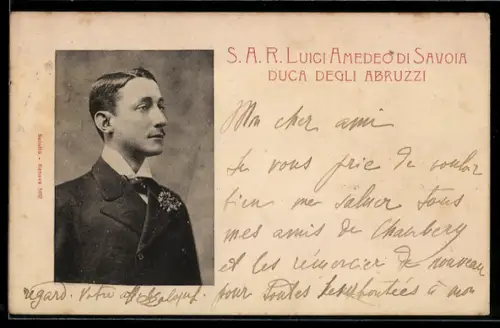 S. A. R. LUIGI AMEDEO DI SAVOIA
DUCA DEGLI ABRUZZI
Mon cher ami
Je vous prie de vouloir
bien me saluer tous
mes amis de Chambery
et les remercier de nouveau
pour toutes bontées à mon
regard. Votre aff